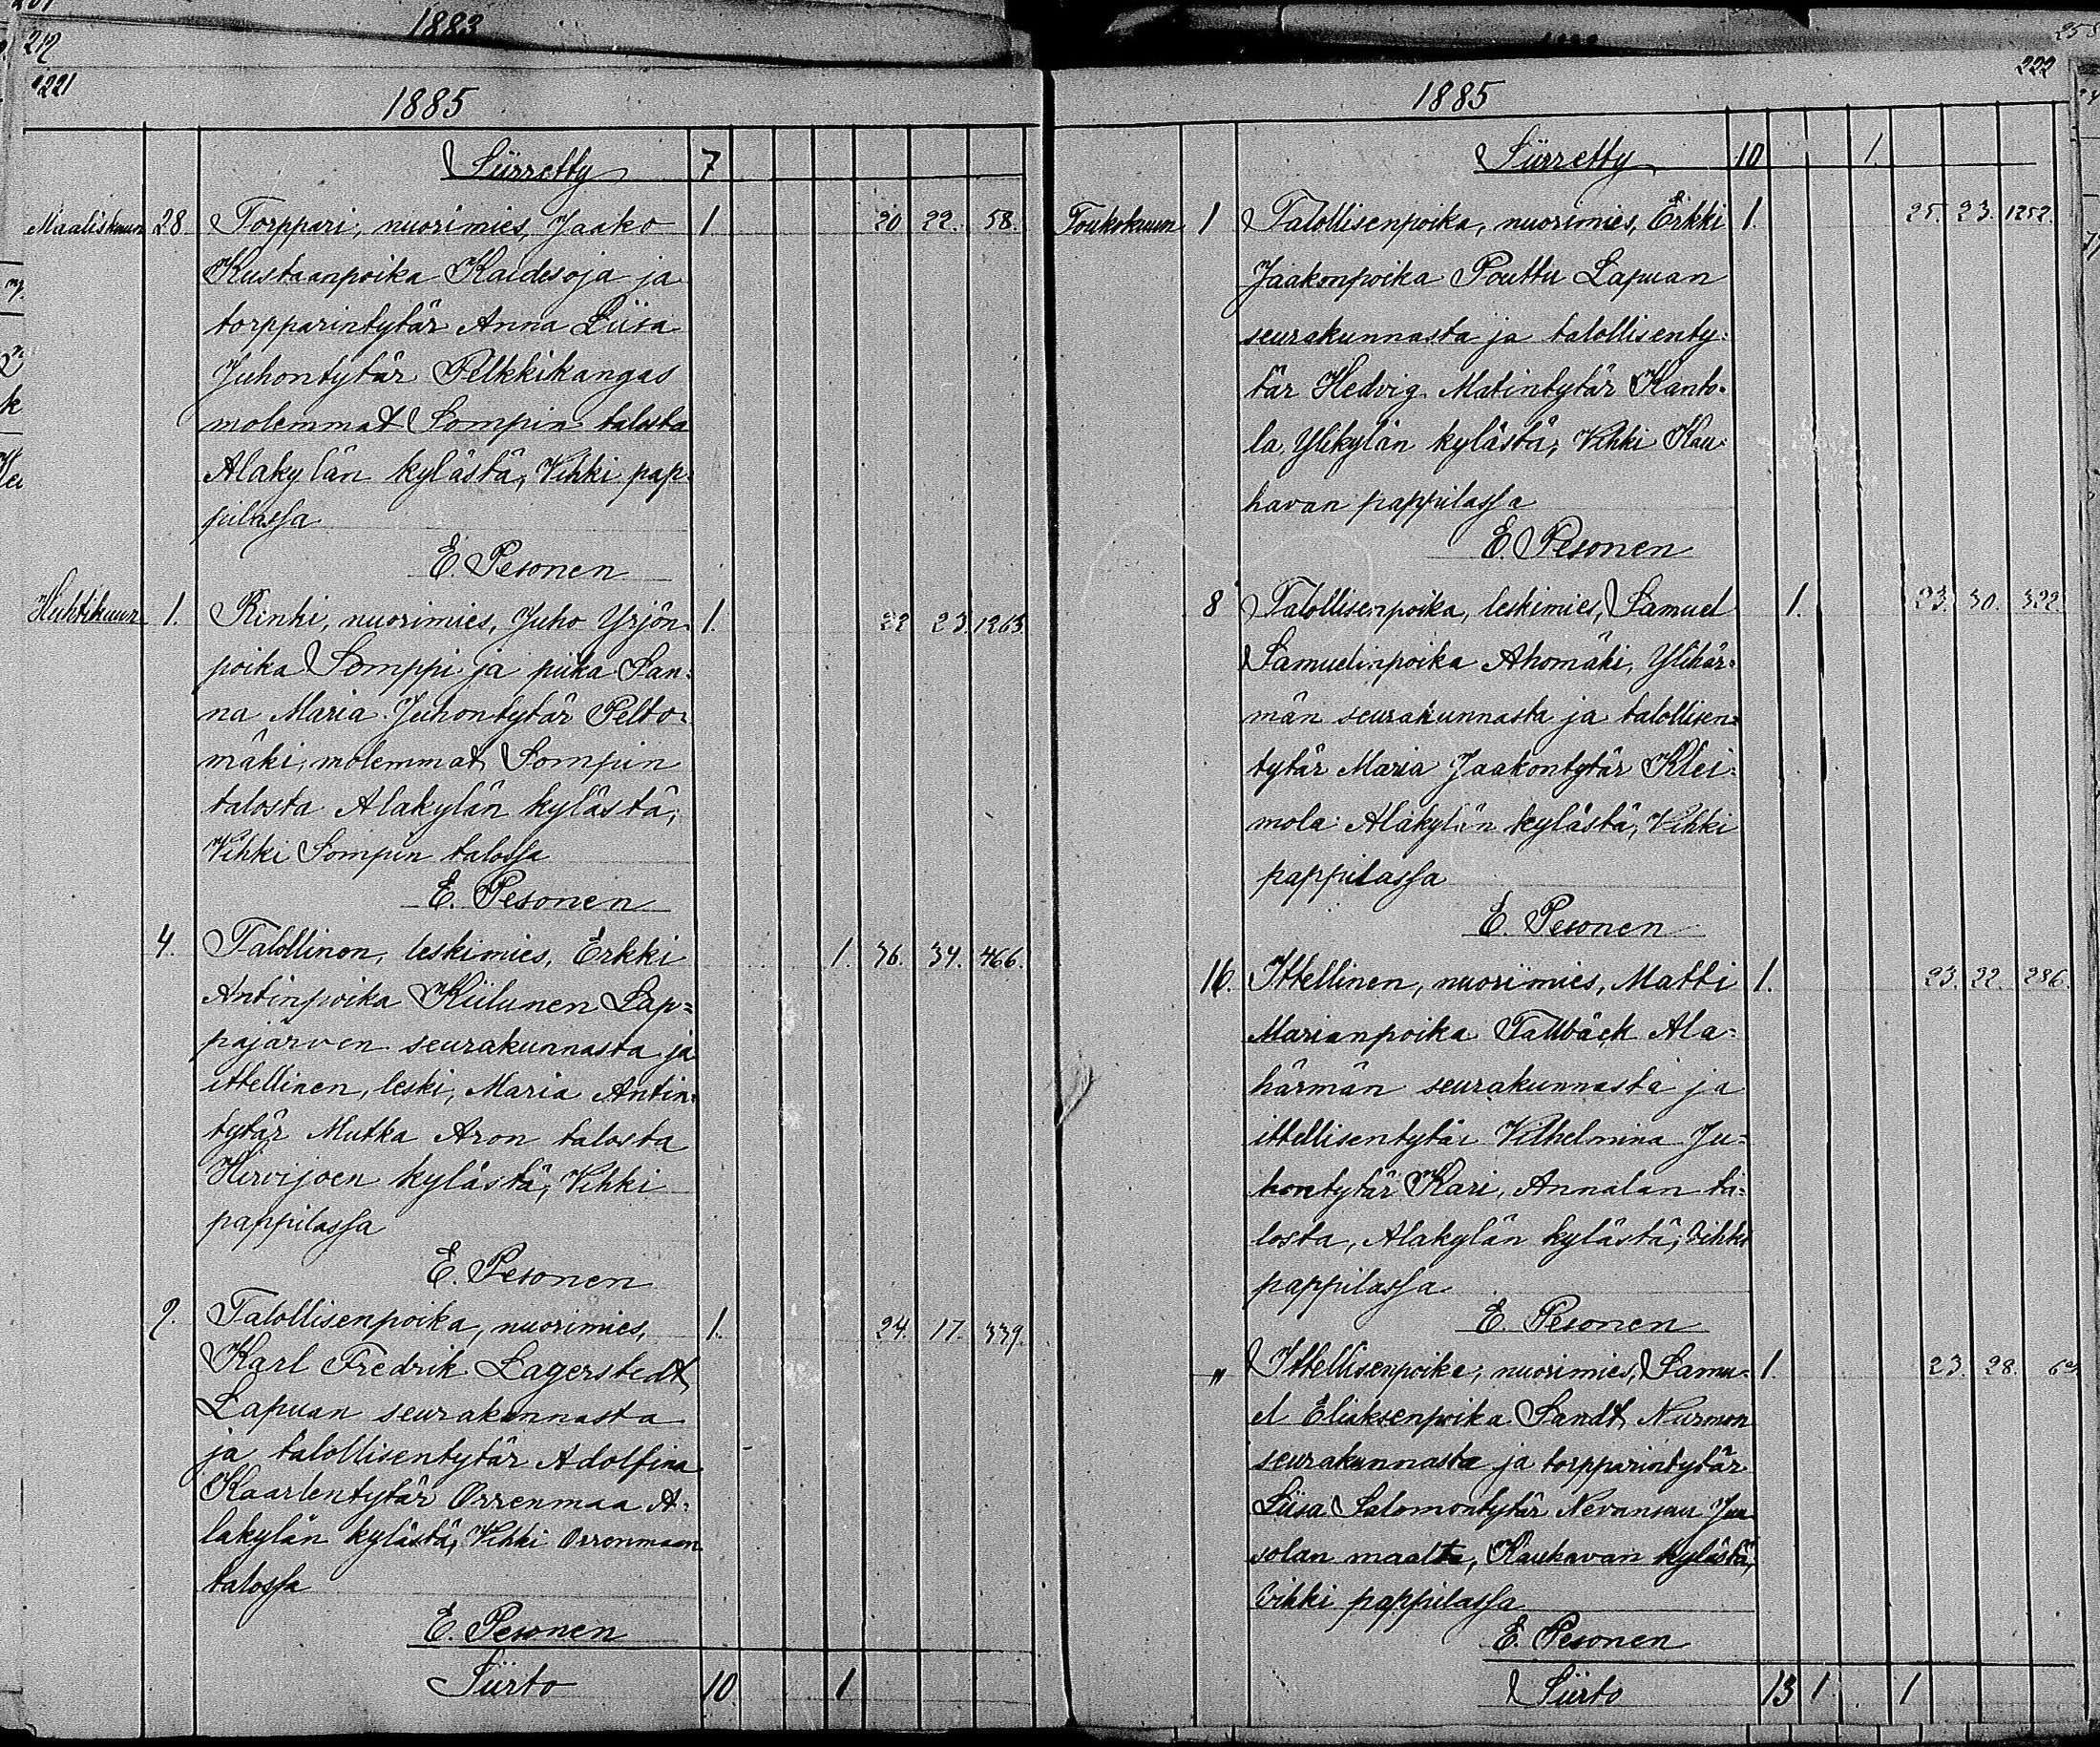 1883
219
221
1885
Siirretty 7
Maaliskuun 28. Torppari, nuorimies, Jaako 1 20 22. 58.
Kustaanpoika Kaidesoja ja
torpparintytär Anna Liisa
Juhontytär Pelkkikangas
molemmat Sompin talosta
Alakylän kylästä; Vihki pap-
pilassa
E. Pesonen
Huhtikuun 1. Renki, nuorimies, Juho Yrjön- 1. 22 23. 1263.
poika Somppi ja piika San-
na Maria Juhontytär Pelto-
mäki, molemmat Sompin
talosta Alakylän kylästä;
Vihki Sompin talossa
E. Pesonen
4. Talollinen, leskimies, Erkki 1. 36. 34. 466.
Antinpoika Kiilunen Lap=
pajärven seurakunnasta ja
ittellinen, leski, Maria Antin-
tytär Mutka Aron talosta
Hirvijoen kylästä; Vihki
pappilassa
E. Pesonen
9. Talollisenpoika, nuorimies, 1. 24. 17. 339.
Karl Fredrik Lagerstedt
Lapuan seurakunnasta
ja talollisentytär Adolfina
Kaarlentytär Orrenmaa A-
lakylän kylästä; Vihki Orrenmaan
talossa
E. Pesonen
Siirto 10 1
222
1885
Siirretty 10 1
Toukokuun 1 Talollisenpoika, nuorimies, Erkki 1. 25. 23. 1252.
Jaakonpoika Pouttu Lapuan
seurakunnasta ja talollisenty-
tär Hedvig Matintytär Kanto-
la, Ylikylän kylästä; Vihki Kau-
havan pappilassa
E. Pesonen
8 Talollisenpoika, leskimies, Samuel 1. 23. 30. 322
Samuelinpoika Ahomäki, Ylihär-
män seurakunnasta ja talollisen-
tytär Maria Jaakontytär Klei-
mola Alakylän kylästä; Vihki
pappilassa
E. Pesonen
16. Ittellinen, nuorimies, Matti 1. 23. 22. 286.
Marianpoika Tallbäck Ala-
härmän seurakunnasta ja
ittellisentytär Vilhelmina Ju-
hontytär Kari, Annalan ta-
losta, Alakylän kylästä; Vihki
pappilassa
E. Pesonen
" Ittellisenpoika, nuorimies, Samu- 1. 23. 28.
el Eliaksenpoika Sandt, Nurmon
seurakunnasta ja torpparintytär
Liisa Salomontytär Nevansuu
solan maalta, Kauhavan kylästä;
Vihki pappilassa
E. Pesonen
Siirto 13 1 1